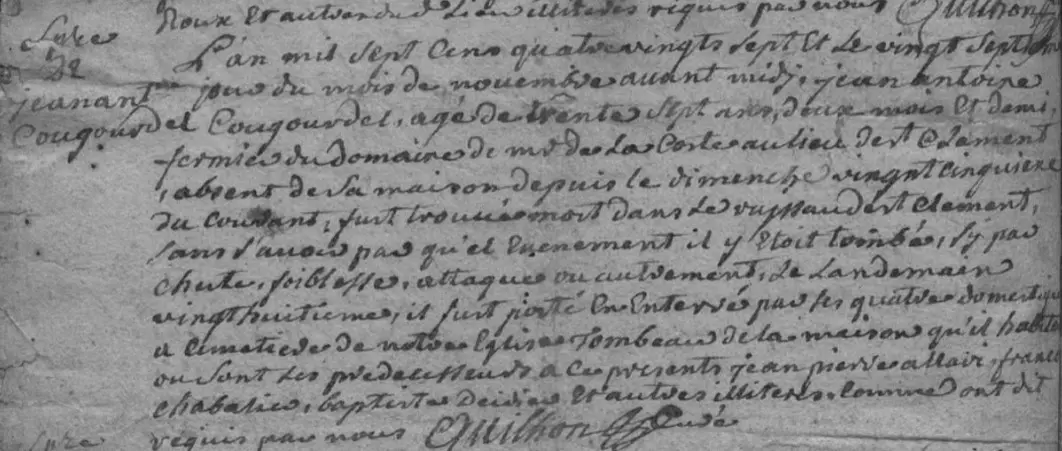 Roux Et autres dud Lieu illiteres requis par nous Guilhon
L'an mil sept Cens quatre vingts sept Et Le vingt septieme
jour du mois de novembre avant midi, jean antoine
jeanant
Cougourdel Cougourdel, agé de trente sept ans, deux mois Et demi
fermier du domaine de mr de La Coste au lieu de st Clement
, absent de sa maison depuis le dimenche vingnt cinquieme
du Courant, fust trouvé mort dans Le ruissaud de st Clement,
sans s'avoir par qu'el Evenement il y Etoit tombé, sy par
chute, foiblesse, attaque ou autrement, Le Landemain
vingt huitieme, il fust porté En Enterré par ses quatre domestiques
a Cimetiere de notre Eglise Tombeau de la maison qu'il habite
ou sont ses predecesseurs a Ce presents jean pierre allair, franc
chabalier, baptiste Et autres illiteres, Comme ont dit
requis par nous Guilhon Curé